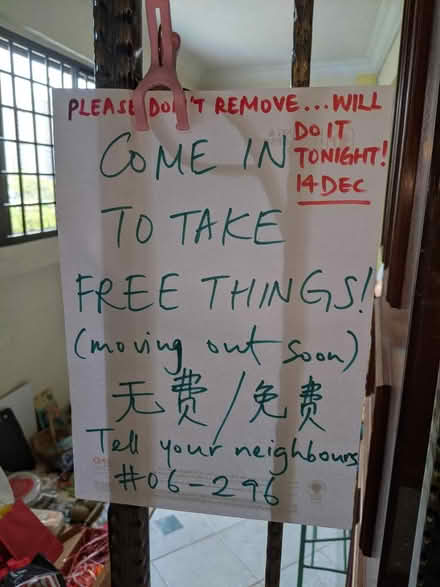 PLEASE DON'T REMOVE...WILL
DO IT
TONIGHT!
14 DEC
COME IN
TO TAKE
FREE THINGS!
(moving out soon)
无费/免费
Tell your neighbours
#06-296